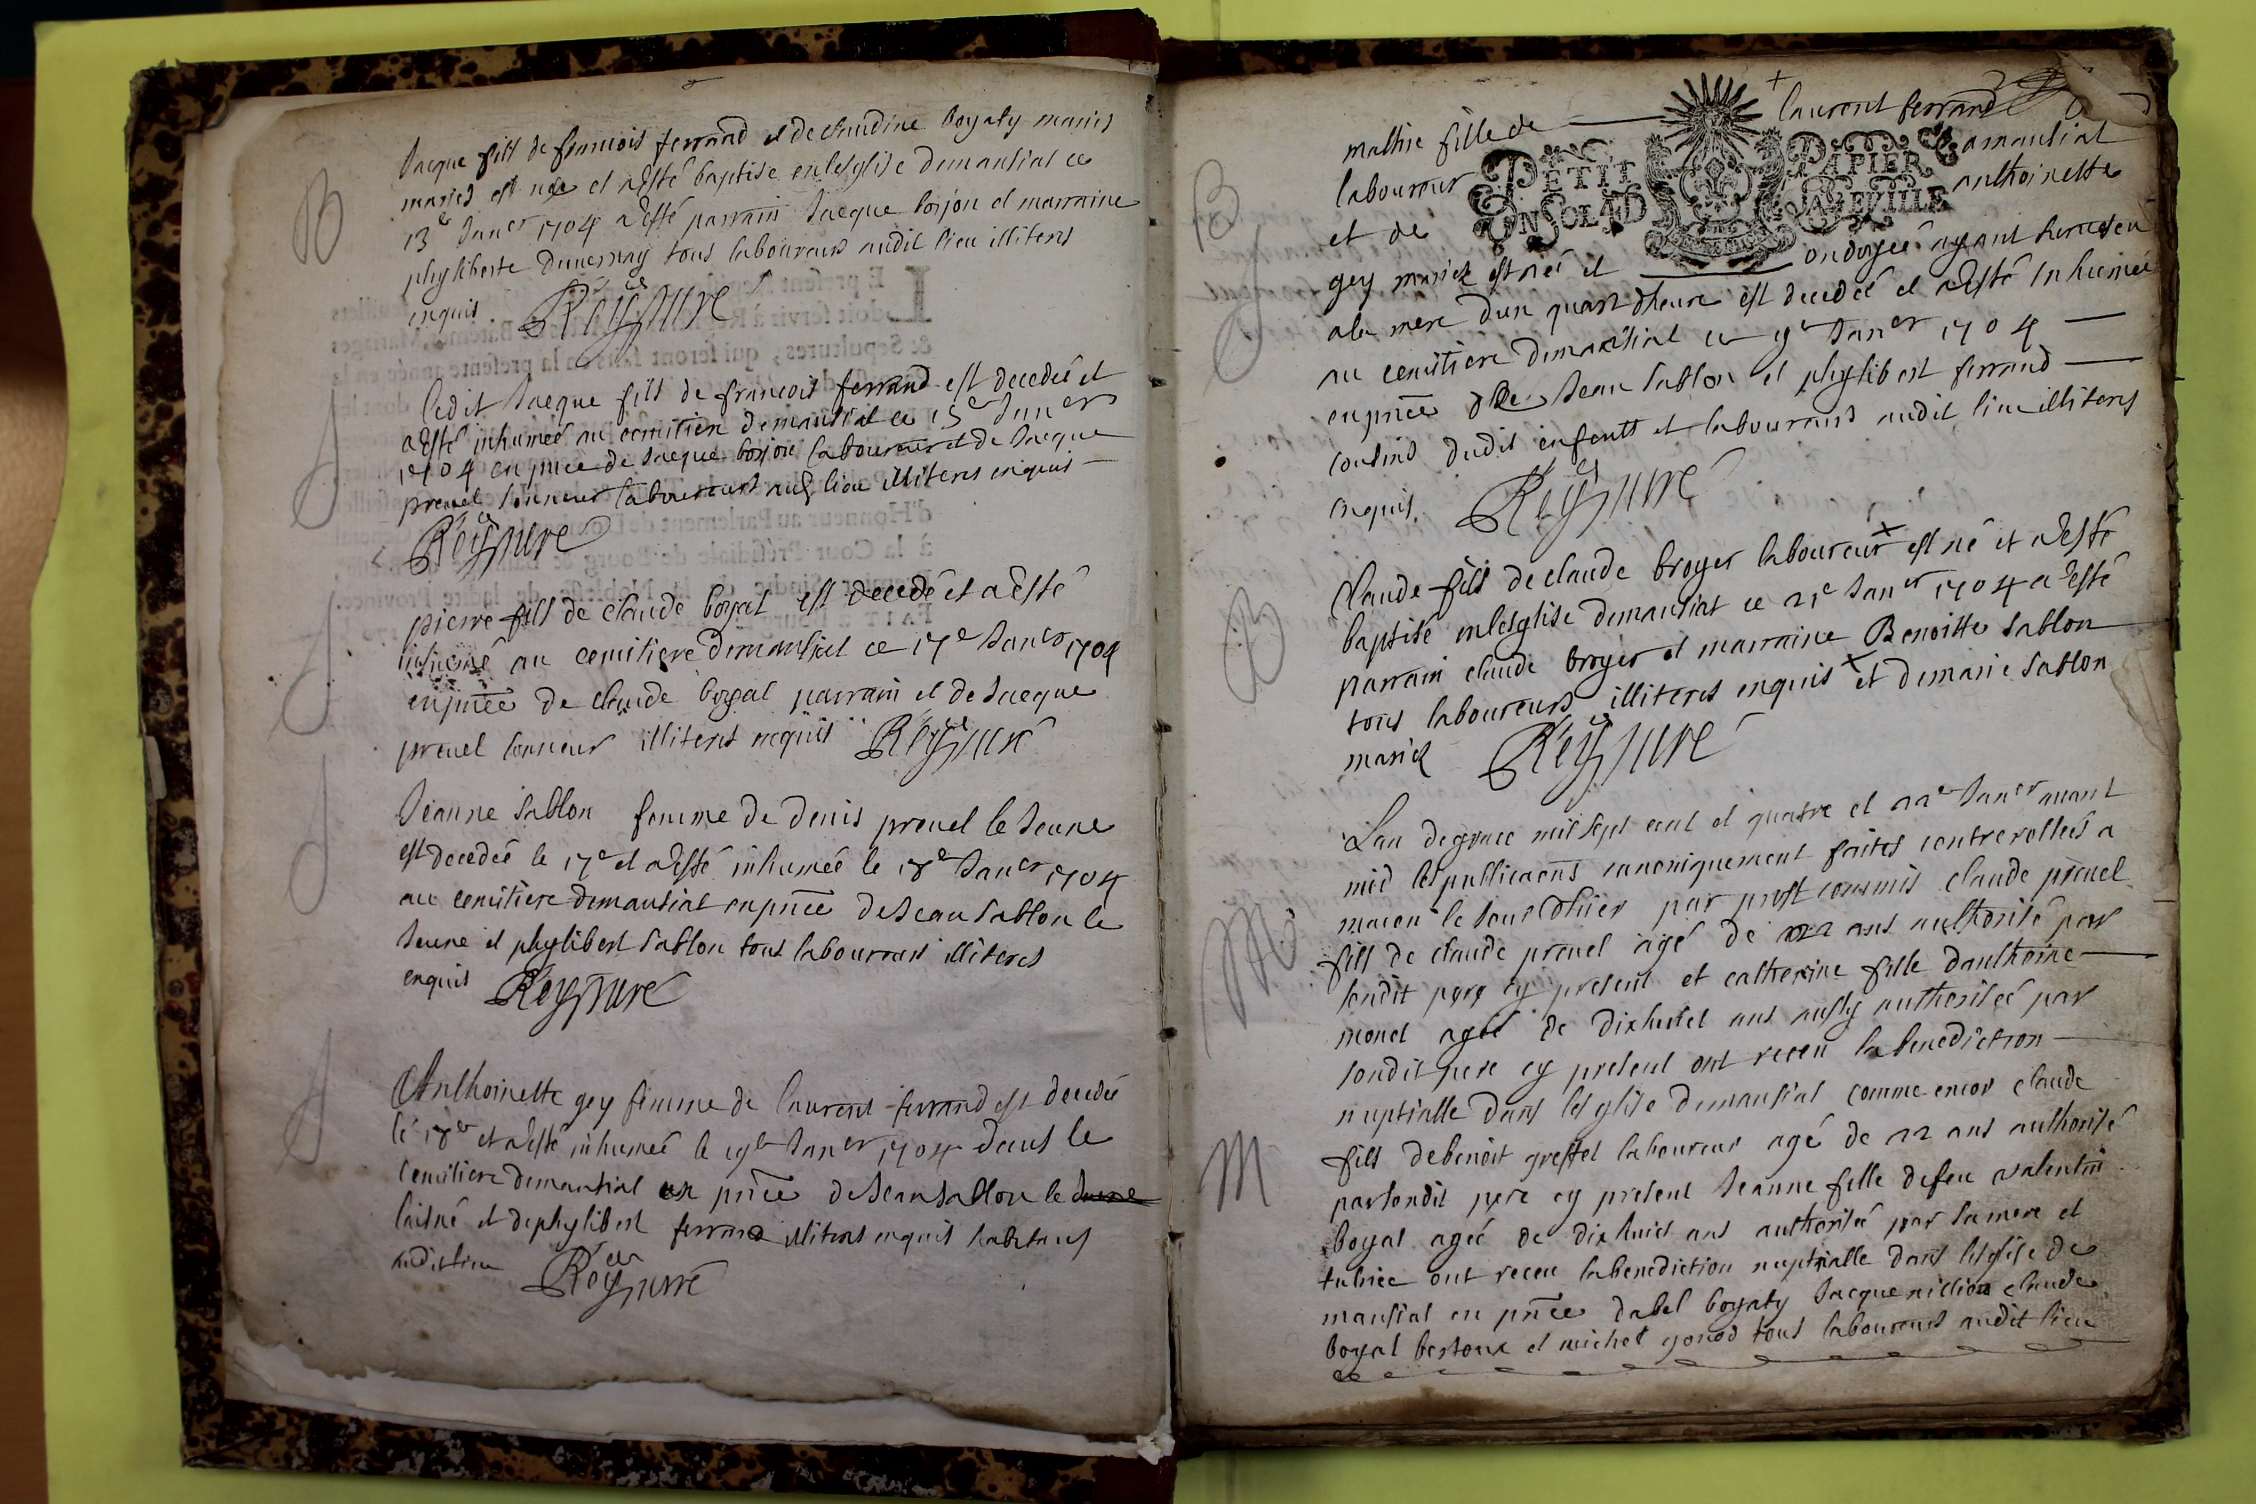 B
Jacque fils de francois ferrand et de claudine boyaty mariés
mariés est née et a esté baptise en lesglise demantiat ce
13e Janer 1704 a esté parrain Jacque borjon et marraine
phyliberte duvernay tous laboureurs audit lieu illiteres
enquis Rey curé
ledit Jacque fils de francois ferrand est decedéé et
a esté inhumée au cemitiere demantiat ce 15e Janer
1704 en pnce de Jacque borjon laboureur et de Jacque
prevel sonneur laboureurs aud lieu illiteres enquis
Rey curé
pierre fils de claude boyat est decedé et a esté
inhumé au cemitiere demantiat ce 17e Janer 1704
en pnce de claude boyat parrain et de Jacque
prevel sonneur illiteres enquis Rey curé
Jeanne sablon femme de denis prevel le Jeune
est decedéé le 17e et a esté inhumée le 18e Janer 1704
au cemitiere demantiat en pnce de Jean sablon le
Jeune et phylibert sablon tous laboureurs illiteres
enquis Rey curé
Anthoinette gey femme de laurent ferrand est decedée
le 18e et a esté inhumée le 19e Janer 1704 dans le
cemitiere demantiat en pnce de Jean sablon le Jeune
laisné et de phylibert ferrand illiteres enquis habitans
audit lieu Rey curé
B
mathie fille de laurent ferrand
laboureur PETIT PAPIER amantiat
et de UN SOL 4 D LA FEVILLE anthoinette
gey mariés est néé et ondoyéé ayant survescu
a la mere dun quart dheure est decedéé et a esté inhumée
au cemitiere demantiat ce 19e Janer 1704
en pnce de Jean sablon et phylibert ferrand
cousins dudit enfant et laboureurs audit lieu illiteres
enquis. Rey curé
B
Claude fils de claude broyer laboureur x est né et a esté
baptisé en lesglise demantiat ce 21e Janer 1704 a esté
parrain claude broyer et marraine Benoitte sablon
tous laboureurs illiteres enquis x et de marie sablon
mariés Rey curé
Lan de grace mil sept cent et quatre et 22e Janer avant
mid les publicaons canoniquement faites controrollees a
macon le Jour dhier par prost commis claude prevel
M
fils de claude prevel agé de 22 ans authorisé par
sondit pere cy present et catherine fille danthoine
monet agée de dixhuict ans aussy authoriséé par
sondit pere cy present ont receu la benediction
nuptialle dans lesglise demantiat comme encor claude
M
fils de benoit greffet laboureur agé de 22 ans authorisé
par sondit pere cy present Jeanne fille de feu valentin
boyat agéé de dixhuict ans authoriséé par sa mere et
tutrice ont receu la benediction nuptialle dans lesglise de
mantiat en pnce dabel boyaty Jacque claude
boyat bertoux et michel gonod tous laboureurs audit lieu